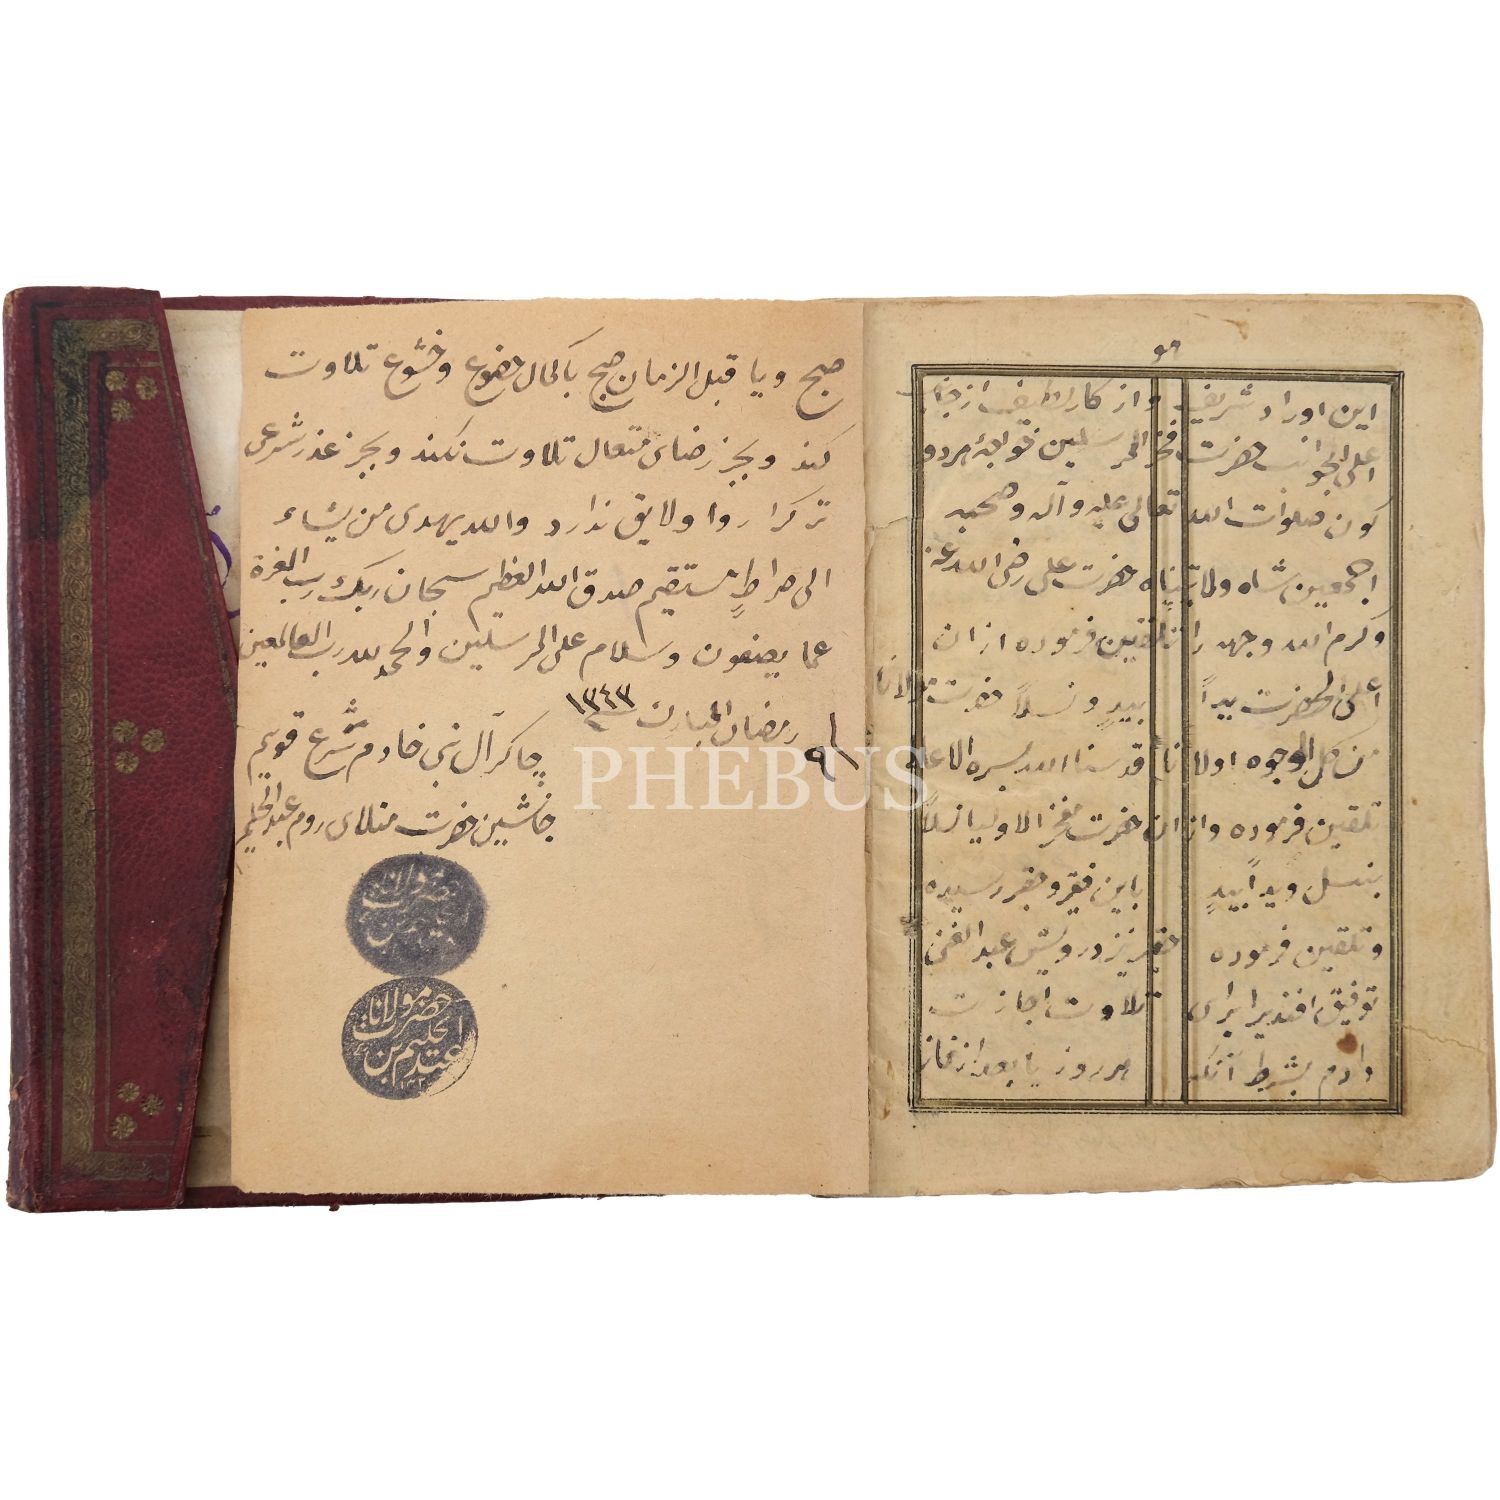 هو
این اوراد شریف و از کار لطیف از جناب
اعلی الجوانب حضرت فخر المرسلین خواجهٔ هر دو
کون صلوات الله تعالی علیه وآله وصحبه
اجمعین شاه ولایتپناه حضرت علی رضی الله عنه
وکرم الله وجهه را تلقین فرموده از ان
اعلی الحضرت یداً بیدٍ ونسلاً حضرت مولانا
من کل الوجوه اولانا قدسنا الله بسره الاعلی
تلقین فرموده واز ان حضرت مفخر الاولیا نسلاً
بنسل ویداً بیدٍ باین فقیر رسیده
وتلقین فرموده نیز درویش عبد الغنی
توفیق افندی تلاوت اجازت
دادم بشرط آنکه هر روز یا بعد از نماز
صبح ویا قبل الزمان صبح باکمال خضوع وخشوع تلاوت
کند وبجز رضای متعال تلاوت نکند وبجز عذر شرعی
ترک را روا ولایق ندارد والله یهدی من یشاء
الی صراطٍ مستقیم صدق الله العظیم سبحان ربک رب العزة
عما یصفون وسلام علی المرسلین والحمد لله رب العالمین
٩ رمضان المبارک ١٣٤٣
چاکر آل نبی خادم شرع قویم
جانشین حضرت منلای روم عبد الحلیم
حضرت مولانا
عبد الحلیم بن
PHEBUS